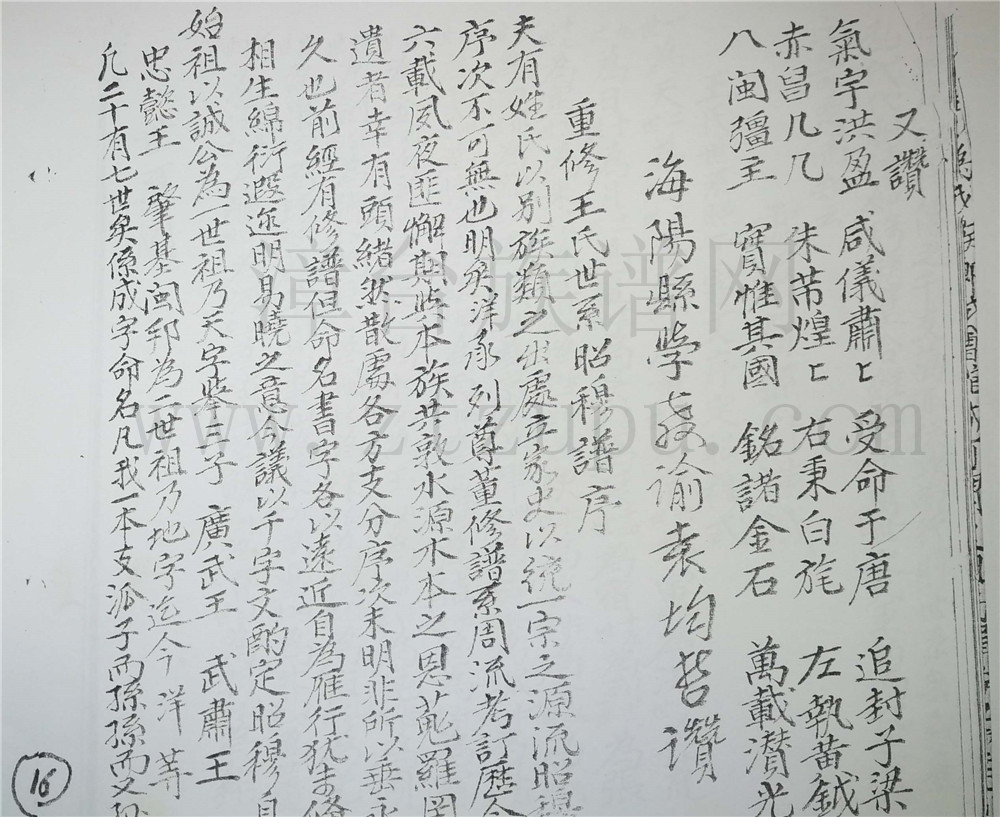 又讚
氣字洪盈 咸儀肅〻 受命于唐 追封子梁
赤舄几几 朱芾煌〻 右秉白旄 左執黃鉞
八閩彊主 寶惟其國 銘諸金石 萬載濳光
海陽縣學教諭袁均哲讚
重修王氏世系昭穆譜序
夫有姓氏以別族類之出處立家史以統一宗之源流昭穆
序次不可無也明矣洋承列尊董修譜系周流考訂歷今
六載夙夜匪懈期與本族共敦水源木本之恩蒐羅罔
遺者幸有頭緒然散處各方支分序次未明非所以垂永
久也前經有修譜但命名書字各以遠近自為雁行犹未條
相生綿衍遐迩明易曉之意公議以千字文酌定昭穆自
始祖以誠公為一世祖乃天字輩三子 廣武王 武肅王
忠懿王 肇基閩邦為二世祖乃地字迄今洋等
凢二十有七世矣係成字命名凡我一本支派子而孫孫而又
16
漳台族谱网
www.ztzupu.com